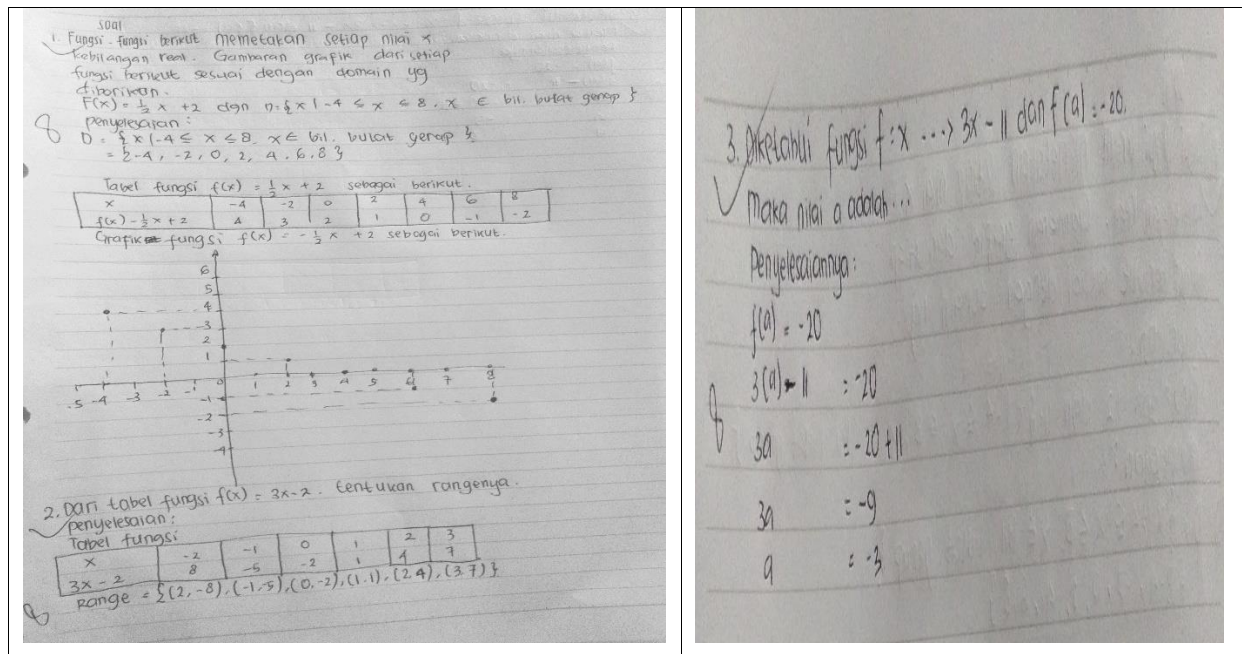 soal
1. Fungsi-fungsi berikut memetakan setiap nilai x
kebilangan real. Gambaran grafik dari setiap
fungsi berikut sesuai dengan domain yg
diborikan.
F(x) = 1/2 x + 2 dgn D: { x | -4 ≤ x ≤ 8. x ∈ bil. bulat genap }
8
penyelesaian :
D = { x | -4 ≤ x ≤ 8. x ∈ bil. bulat genap }.
= { -4, -2, 0, 2, 4, 6, 8 }
Tabel fungsi f(x) = 1/2 x + 2 sebagai berikut.
x -4 -2 0 2 4 6 8
f(x) - 1/2 x + 2 4 3 2 1 0 -1 -2
Grafik fungsi f(x) = - 1/2 x + 2 sebagai berikut.
6
5
4
3
2
1
-5 -4 -3 -2 -1 0 1 2 3 4 5 6 7 8
-1
-2
-3
-4
2. Dari tabel fungsi f(x) = 3x-2. tentukan rangenya.
penyelesaian :
Tabel fungsi
x -2 -1 0 1 2 3
3x - 2 8 -5 -2 1 4 7
Range = { (2, -8), (-1,-5), (0, -2), (1.1), (2 4), (3.7) }
8
3. Diketahui fungsi f : x ---> 3x - 11 dan f(a) = -20.
Maka nilai a adalah...
Penyelesaiannya :
f(a) = -20
3(a) - 11 = -20
8
3a = -20 + 11
3a = -9
a = -3